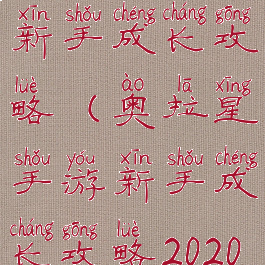 xīn shǒu chéng cháng gōng
新手成长攻
lüè ào lā xīng
略（奥拉星
shǒu yóu xīn shǒu chéng
手游新手成
cháng gōng lüè
长攻略2020